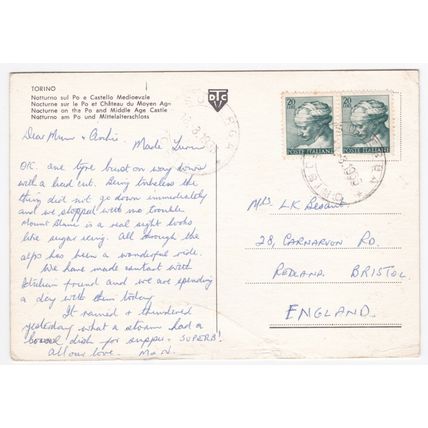 TORINO
Notturno sul Po e Castello Medioevale
Nocturne sur le Po et Château du Moyen Age
Nocturne on the Po and Middle Age Castle
Notturno am Po und Mittelalterschloss
DTC
20
20
POSTE ITALIANE
POSTE ITALIANE
Dear Mum + Andre. Made Turin
O.K. one tyre burst on way down
with a bad cut. Being tubeless the
thing did not go down immediately
and we stopped with no trouble
Mount Blanc is a real sight looks
like sugar icing. All through the
alps has been a wonderful ride.
We have made contact with
friend and we are spending
a day with them today
It rained + thundered
yesterday what a storm had a
local dish for supper. SUPERB!
All our love. M + N.
Mrs. L.K. Besant.
28, CARNARVON RD.
REDLAND. BRISTOL.
ENGLAND.